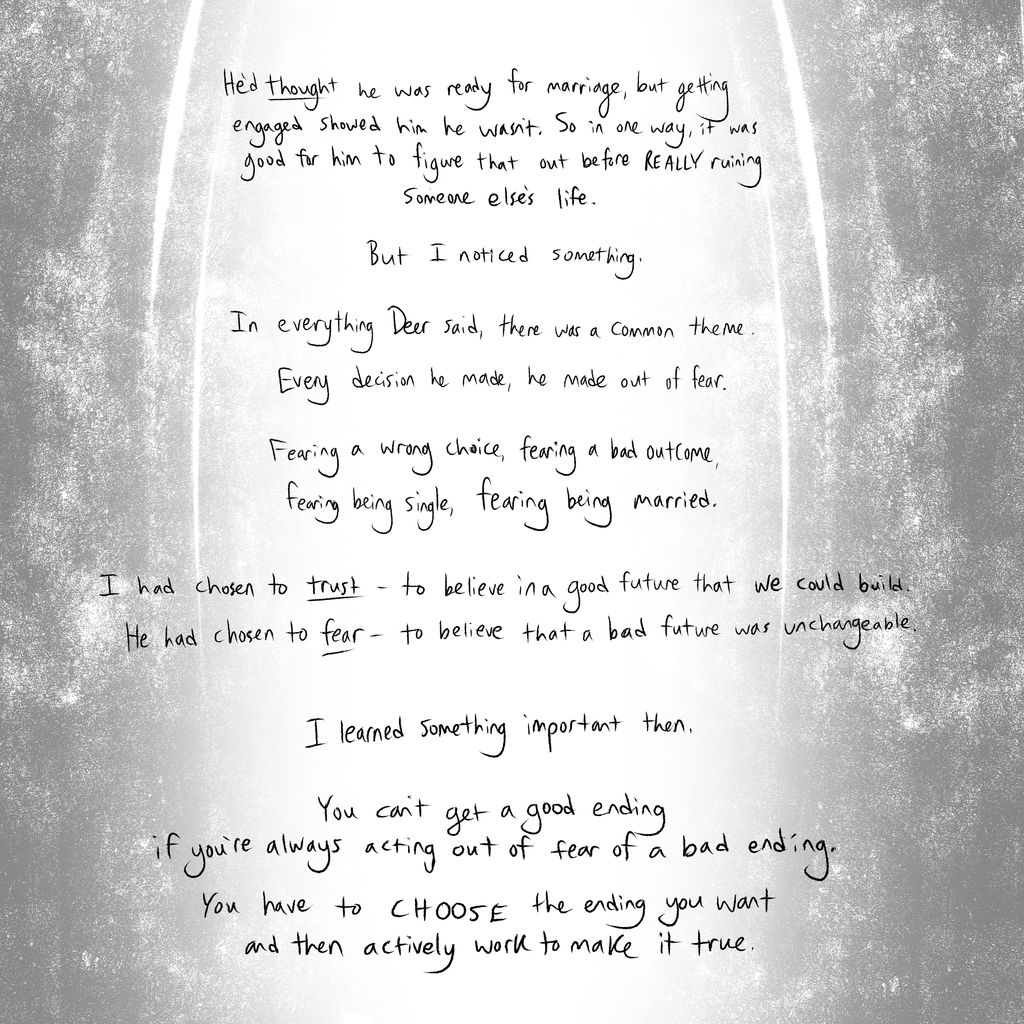 He'd thought he was ready for marriage, but getting
engaged showed him he wasn't. So in one way, it was
good for him to figure that out before REALLY ruining
someone else's life.
But I noticed something.
In everything Deer said, there was a common theme.
Every decision he made, he made out of fear.
Fearing a wrong choice, fearing a bad outcome,
fearing being single, fearing being married.
I had chosen to trust - to believe in a good future that we could build.
He had chosen to fear - to believe that a bad future was unchangeable.
I learned something important then.
You can't get a good ending
if you're always acting out of fear of a bad ending.
You have to CHOOSE the ending you want
and then actively work to make it true.